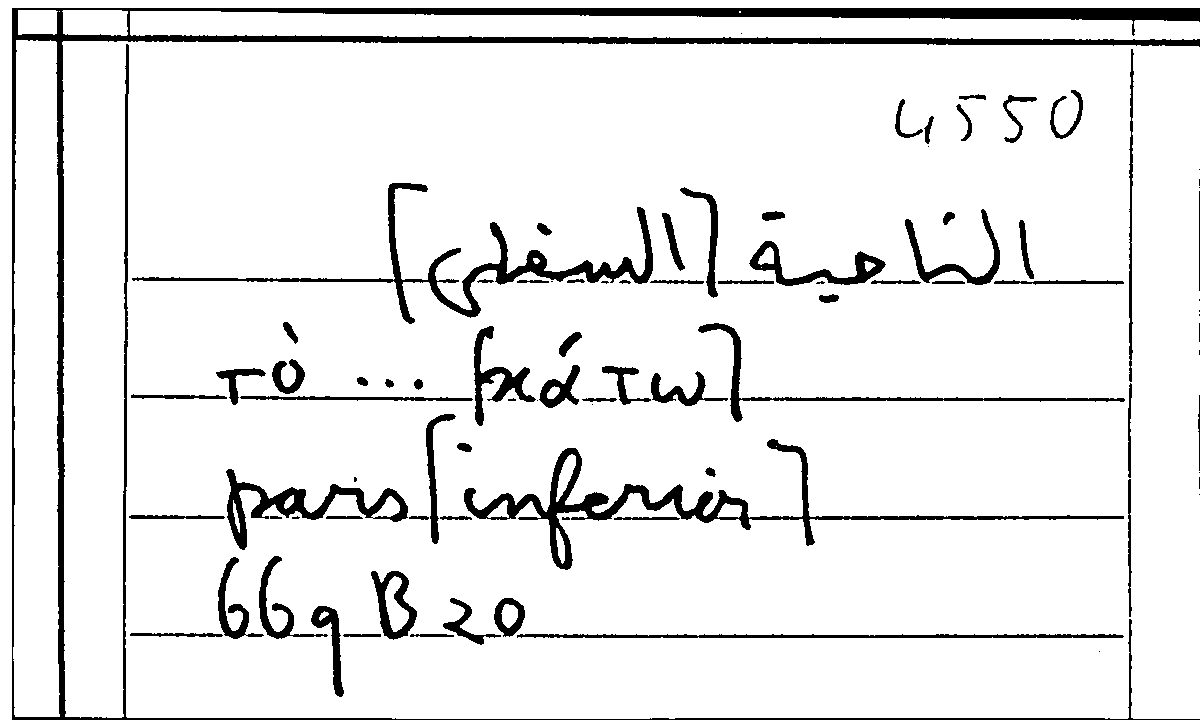 4550
الناحية [السفلى]
τὸ ... [κάτω]
pars [inferior]
669 B 20